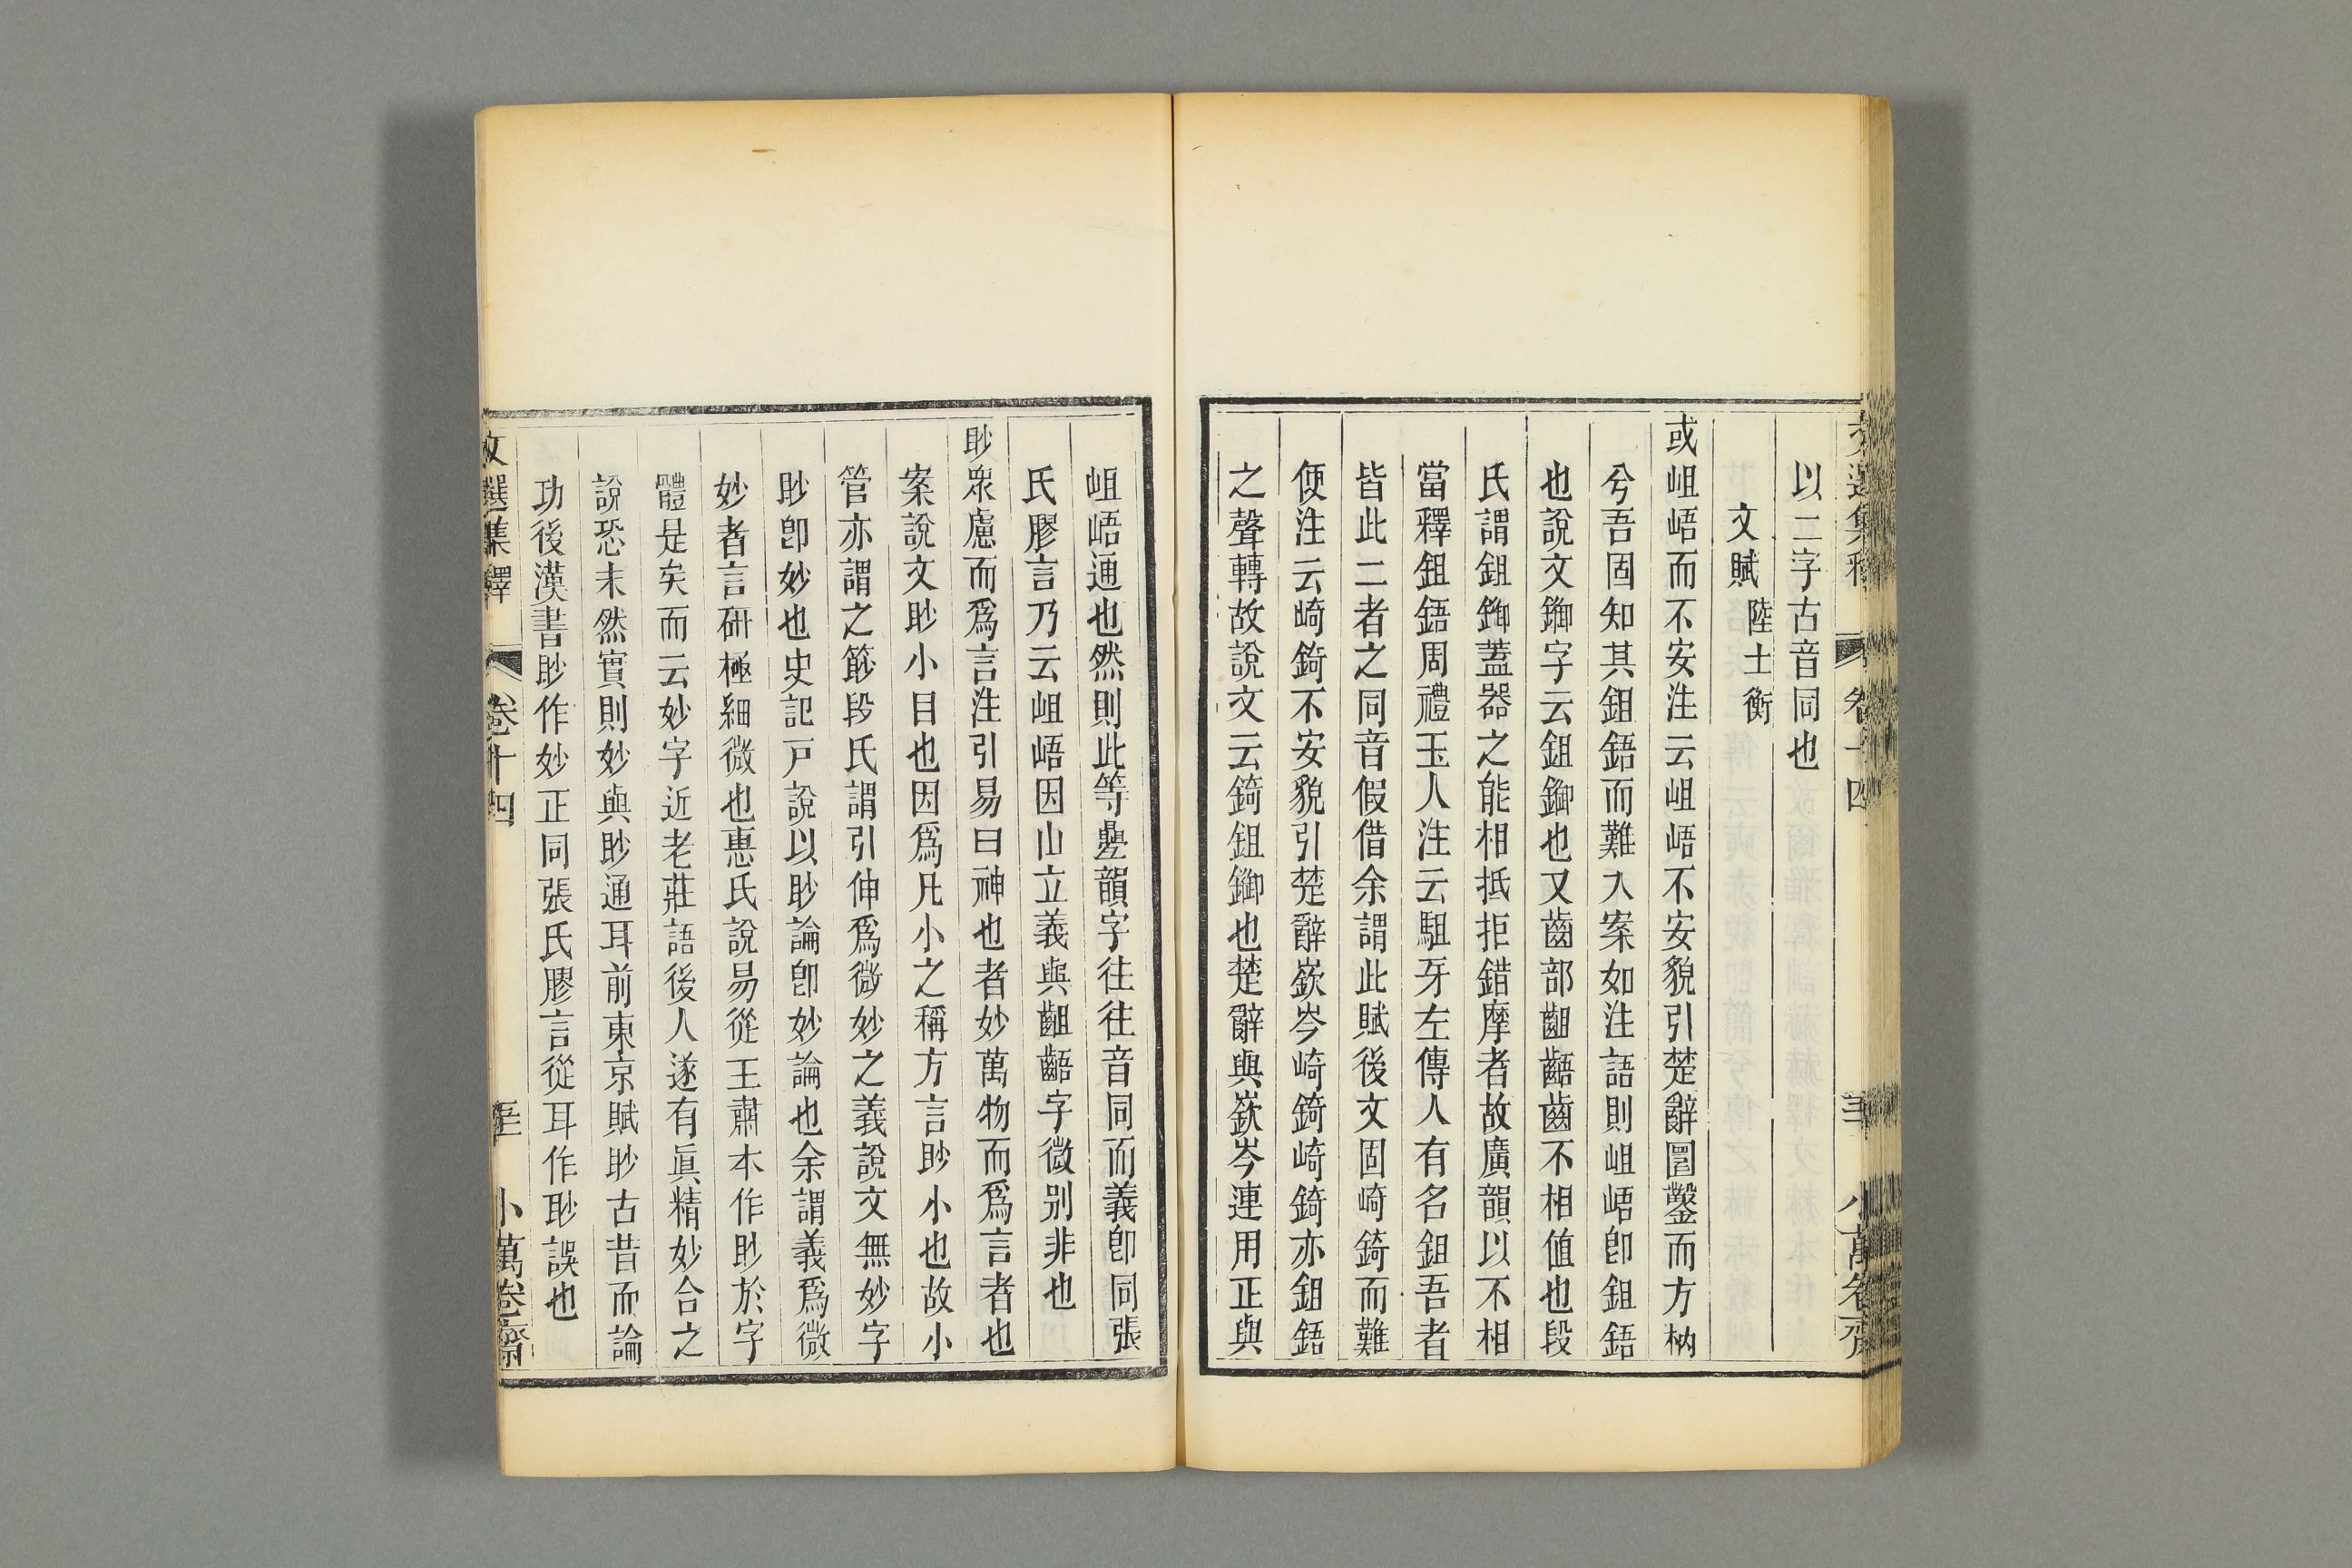 以二字古音同也
文賦 陸士衡
或岨峿而不安注云岨峿不安貌引楚辭圜鑿而方枘
兮吾固知其鉏鋙而難入案如注語則岨峿卽鉏鋙
也說文鋤字云鉏鋤也又齒部齟齬齒不相值也段
氏謂鉏鋤蓋器之能相抵拒錯摩者故廣韻以不相
當釋鉏鋙周禮玉人注云駔牙左傳人有名鉏吾者
皆此二者之同音假借余謂此賦後文固崎錡而難
便注云崎錡不安貌引楚辭嶔岑崎錡崎錡亦鉏鋙
之聲轉故說文云錡鉏鋤也楚辭與嶔岑連用正與
岨峿通也然則此等疊韻字往往音同而義卽同張
氏膠言乃云岨峿因山立義與齟齬字微别非也
眇衆慮而爲言注引易曰神也者妙萬物而爲言者也
案說文眇小目也因爲凡小之稱方言眇小也故小
管亦謂之篎段氏謂引伸爲微妙之義說文無妙字
眇卽妙也史記戸說以眇論卽妙論也余謂義爲微
妙者言研極細微也惠氏說易從王肅本作眇於字
體是矣而云妙字近老莊語後人遂有眞精妙合之
說恐未然實則妙與眇通耳前東京賦眇古昔而論
功後漢書眇作妙正同張氏膠言從耳作䏚誤也
文選集釋 卷十四 小萬卷齋